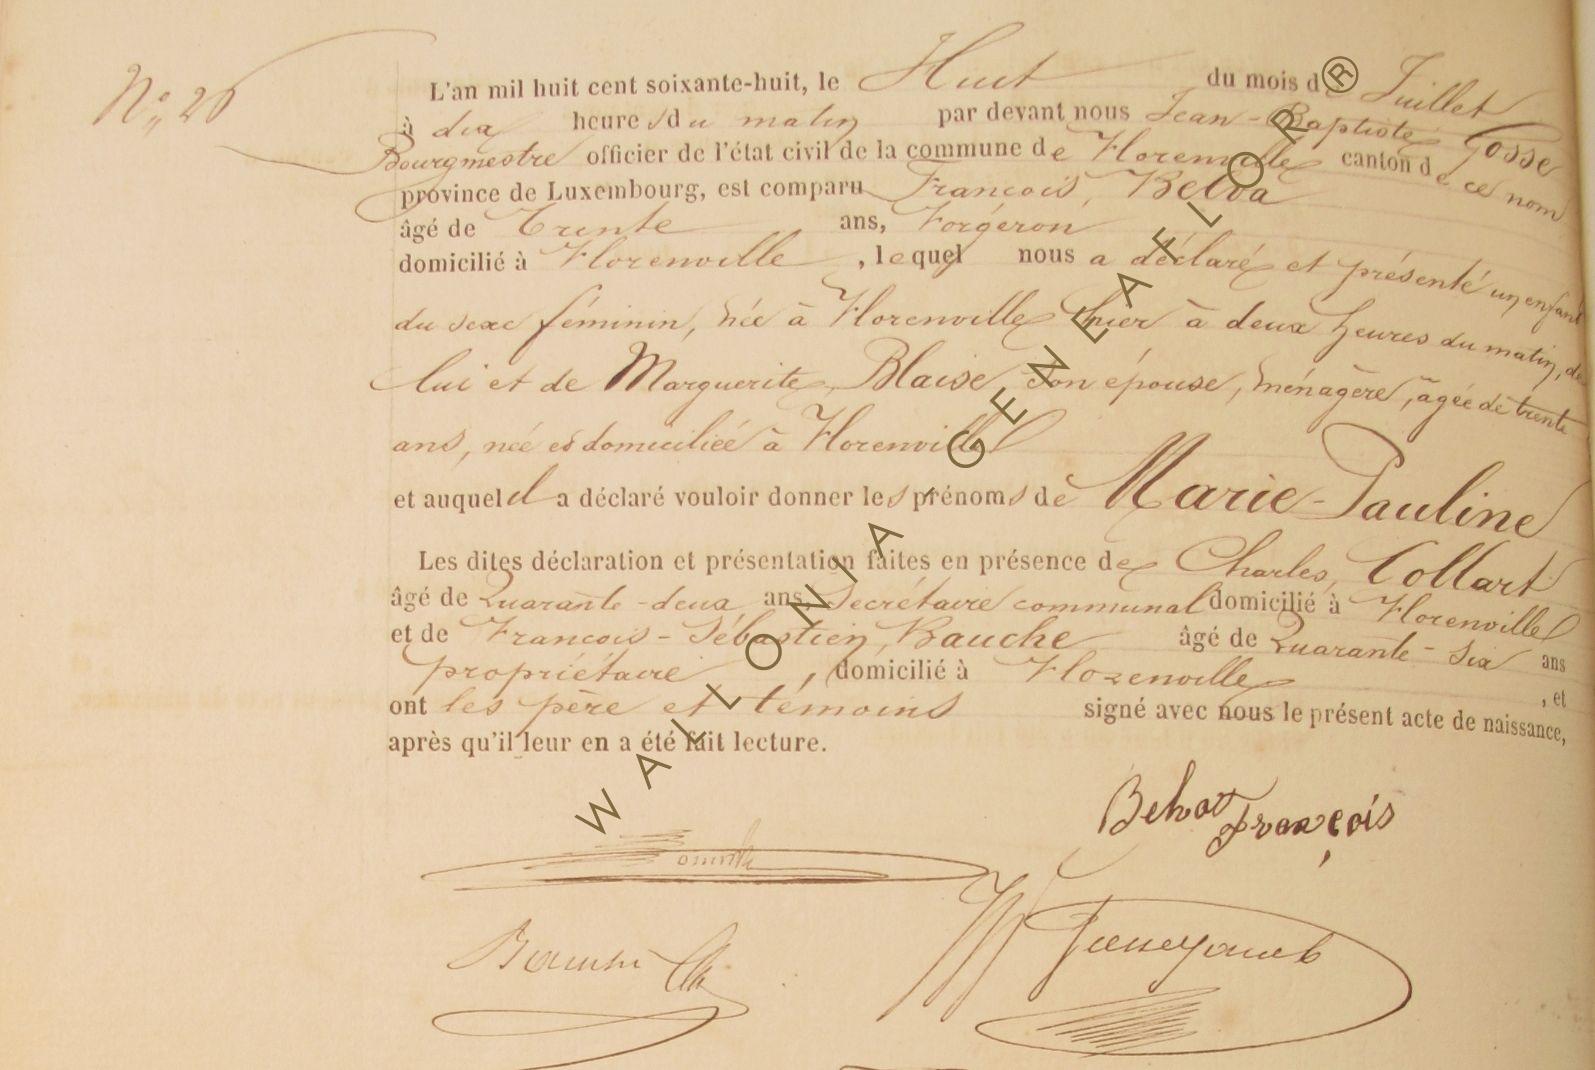 N° 26
L'an mil huit cent soixante-huit, le Huit du mois de Juillet
à dix heures du matin par devant nous Jean-Baptiste Gosse
Bourgmestre officier de l'état civil de la commune de Florenville canton de ce nom
province de Luxembourg, est comparu François, Belva
âgé de Trente ans, Forgeron
domicilié à Florenville, lequel nous a déclaré et présenté un enfant
du sexe féminin, née à Florenville hier à deux heures du matin, de
lui et de Marguerite, Blaise son épouse, ménagère, âgée de trente
ans, née et domiciliée à Florenville
et auquel il a déclaré vouloir donner les prénoms de Marie-Pauline
Les dites déclaration et présentation faites en présence de Charles, Collart
âgé de Quarante-deux ans, Secrétaire communal domicilié à Florenville
et de François-Sébastien, Bauche âgé de Quarante-six ans
propriétaire, domicilié à Florenville, et
ont les père et témoins signé avec nous le présent acte de naissance,
après qu'il leur en a été fait lecture.
François
WALLONIA, GENEAFLOR ®